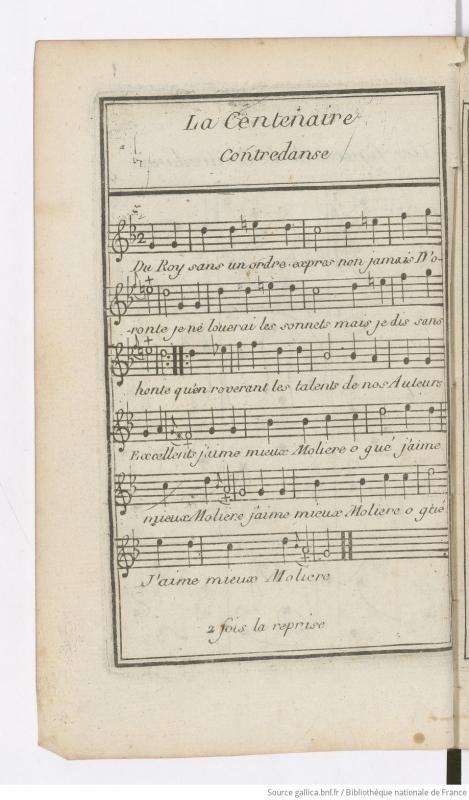 La Centenaire
Contredanse
2
Du Roy sans un ordre expres non jamais D'o-
-ronte je né louerai les sonnets mais je dis sans
honte qu'en roverant les talents de nos Auteurs
Excellents j'aime mieux Moliere o gué j'aime
mieux Moliere j'aime mieux Moliere o gué
J'aime mieux Moliere
2 fois la reprise
Source gallica.bnf.fr / Bibliothèque nationale de France